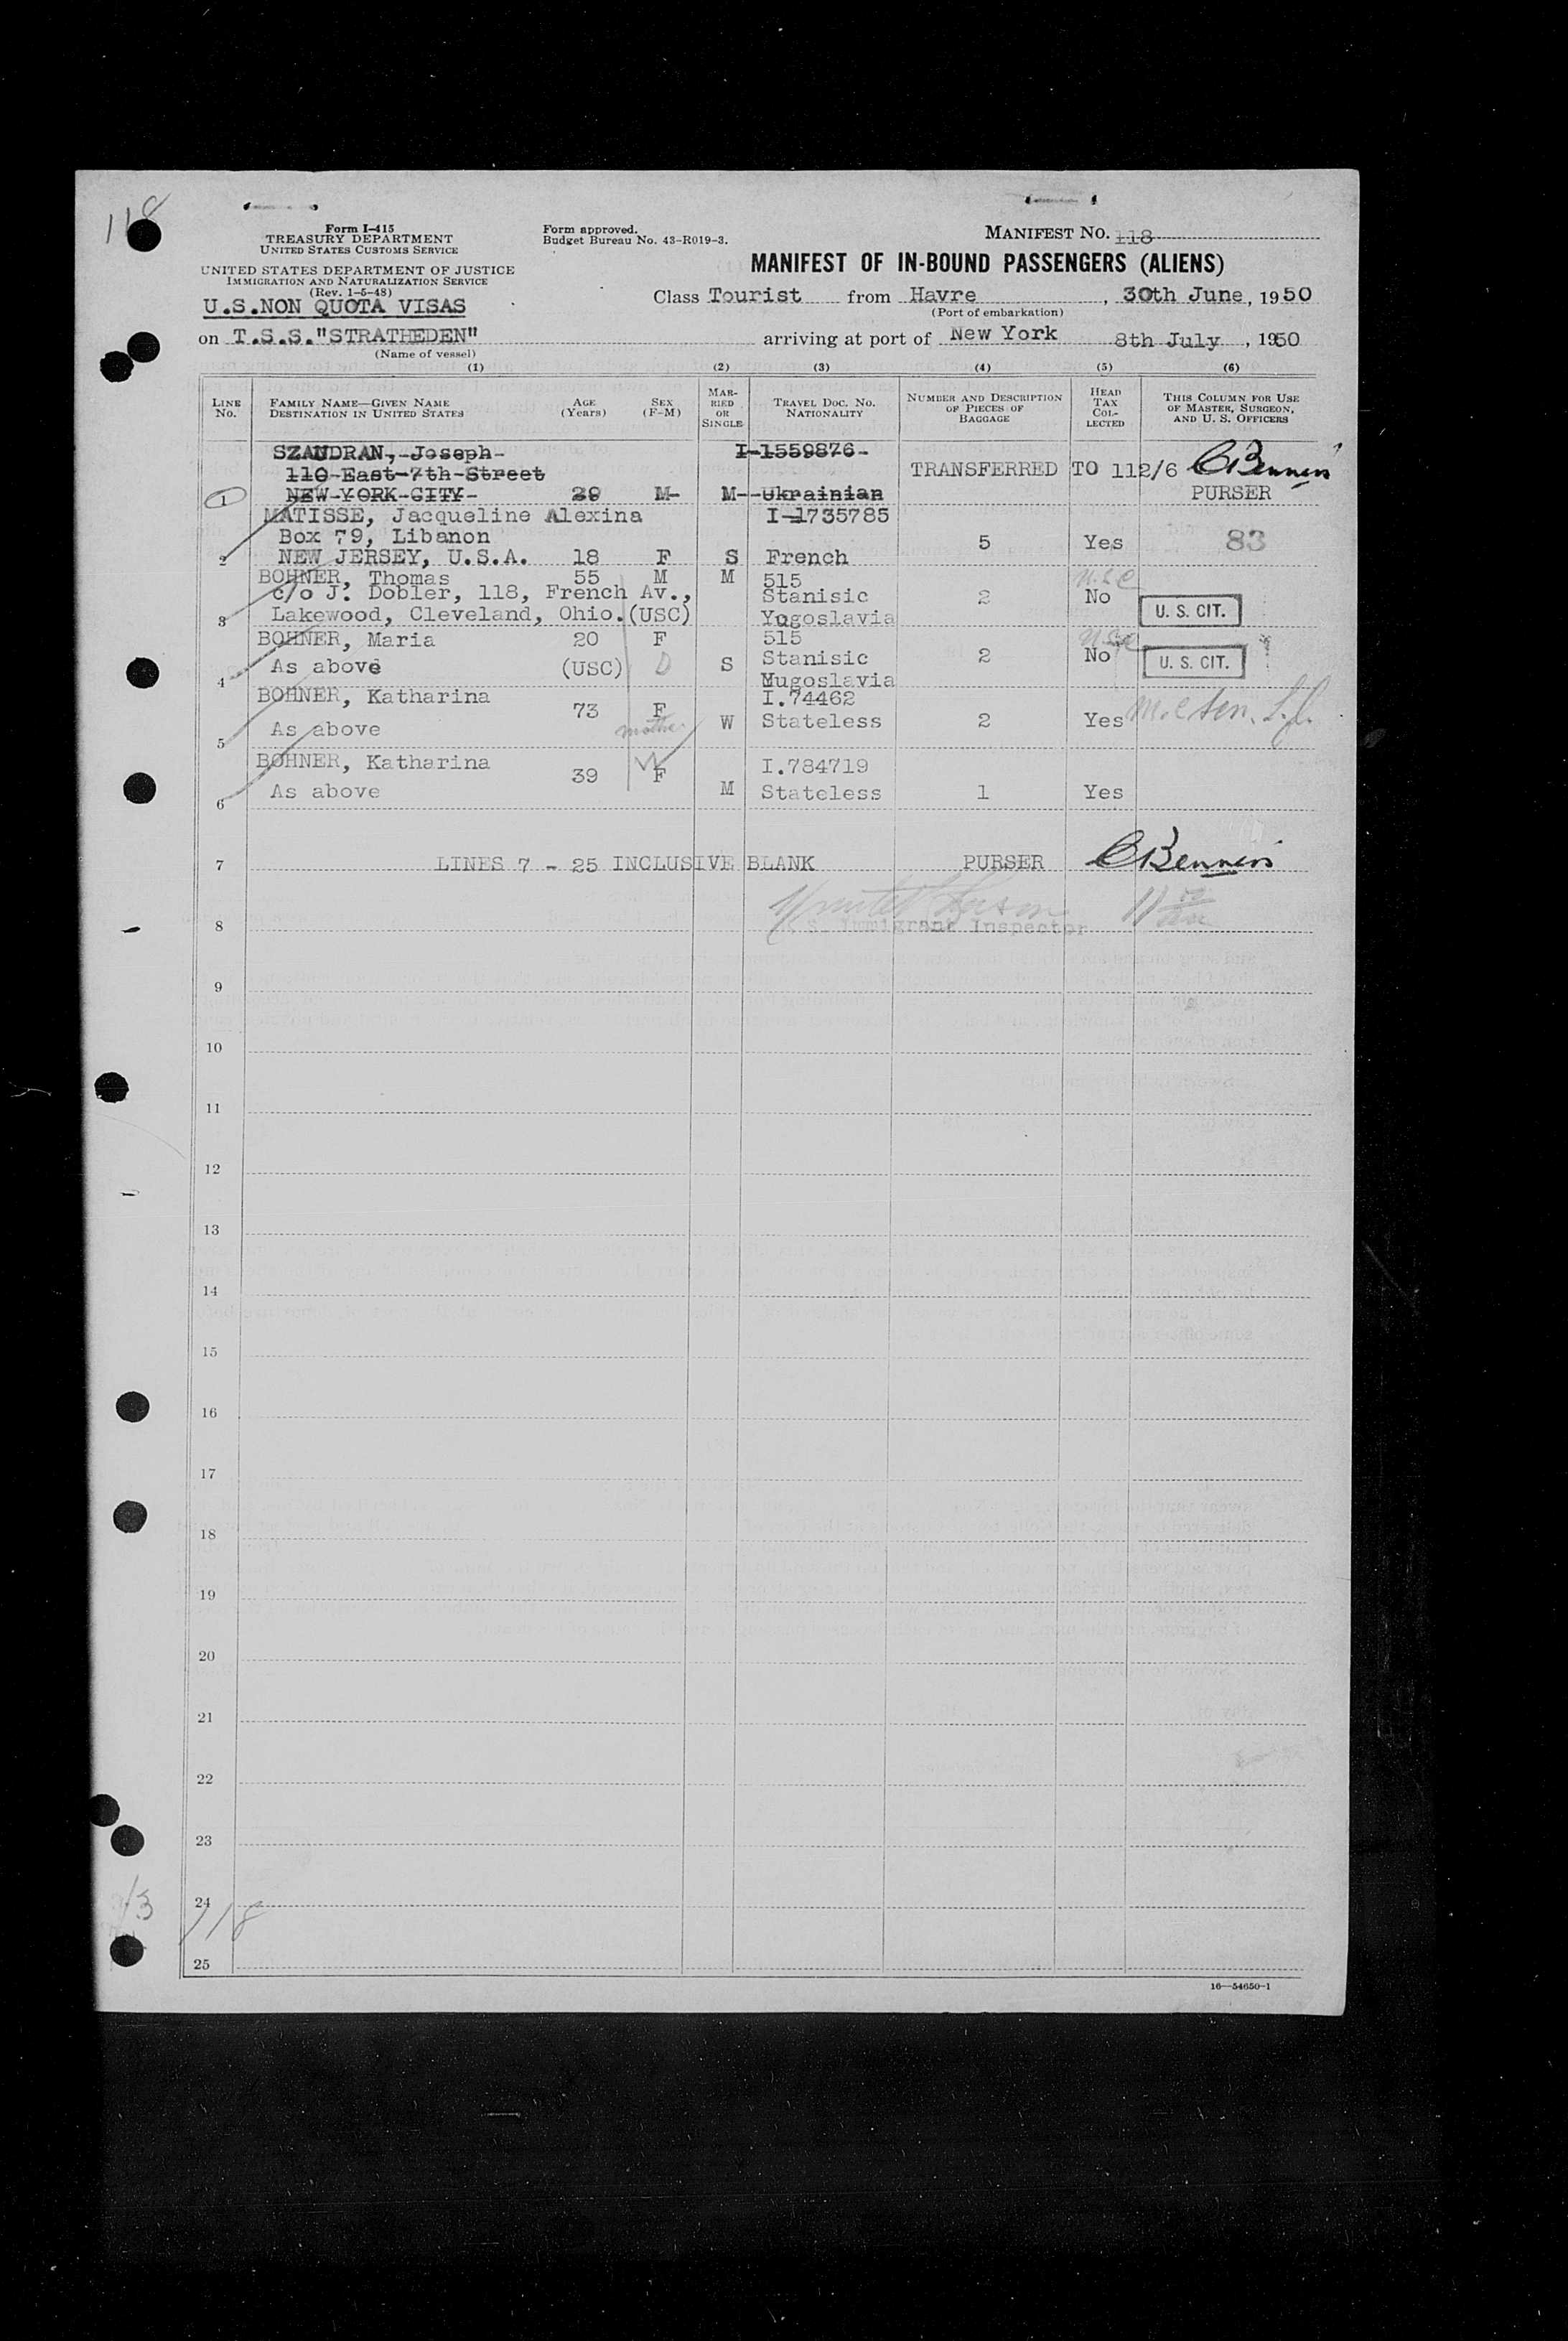 118
Form I-415
TREASURY DEPARTMENT
UNITED STATES CUSTOMS SERVICE
UNITED STATES DEPARTMENT OF JUSTICE
IMMIGRATION AND NATURALIZATION SERVICE
(Rev. 1-5-48)
U.S.NON QUOTA VISAS
Form approved.
Budget Bureau No. 43-R019-3.
MANIFEST NO. 118
MANIFEST OF IN-BOUND PASSENGERS (ALIENS)
Class Tourist from Havre, 30th June, 1950
(Port of embarkation)
on T.S.S."STRATHEDEN" arriving at port of New York 8th July, 1950
(Name of vessel)
(1) (2) (3) (4) (5) (6)
LINE NO. FAMILY NAME—GIVEN NAME DESTINATION IN UNITED STATES AGE (Years) SEX (F-M) MARRIED OR SINGLE TRAVEL DOC. NO. NATIONALITY NUMBER AND DESCRIPTION OF PIECES OF BAGGAGE HEAD TAX COLLECTED THIS COLUMN FOR USE OF MASTER, SURGEON, AND U. S. OFFICERS
SZAUDRAN, Joseph I-1559876
110 East 7th Street TRANSFERRED TO 112/6 CBenners
1 NEW YORK CITY 29 M M Ukrainian PURSER
MATISSE, Jacqueline Alexina I-1735785
Box 79, Libanon 5 Yes 83
2 NEW JERSEY, U.S.A. 18 F S French
BOHNER, Thomas 55 M M 515 U.S.C.
c/o J. Dobler, 118, French Av., Stanisic 2 No
3 Lakewood, Cleveland, Ohio. (USC) Yugoslavia U. S. CIT.
BOHNER, Maria 20 F 515 USC
As above (USC) D S Stanisic 2 No U. S. CIT.
4 Mugoslavia
BOHNER, Katharina I.74462
73 F
As above mother W Stateless 2 Yes
5
BOHNER, Katharina I.784719
39 W F
As above M Stateless 1 Yes
6
7 LINES 7 - 25 INCLUSIVE BLANK PURSER CBenners
8 S. Immigrant Inspector
9
10
11
12
13
14
15
16
17
18
19
20
21
22
23
24
118
25
16—54650-1